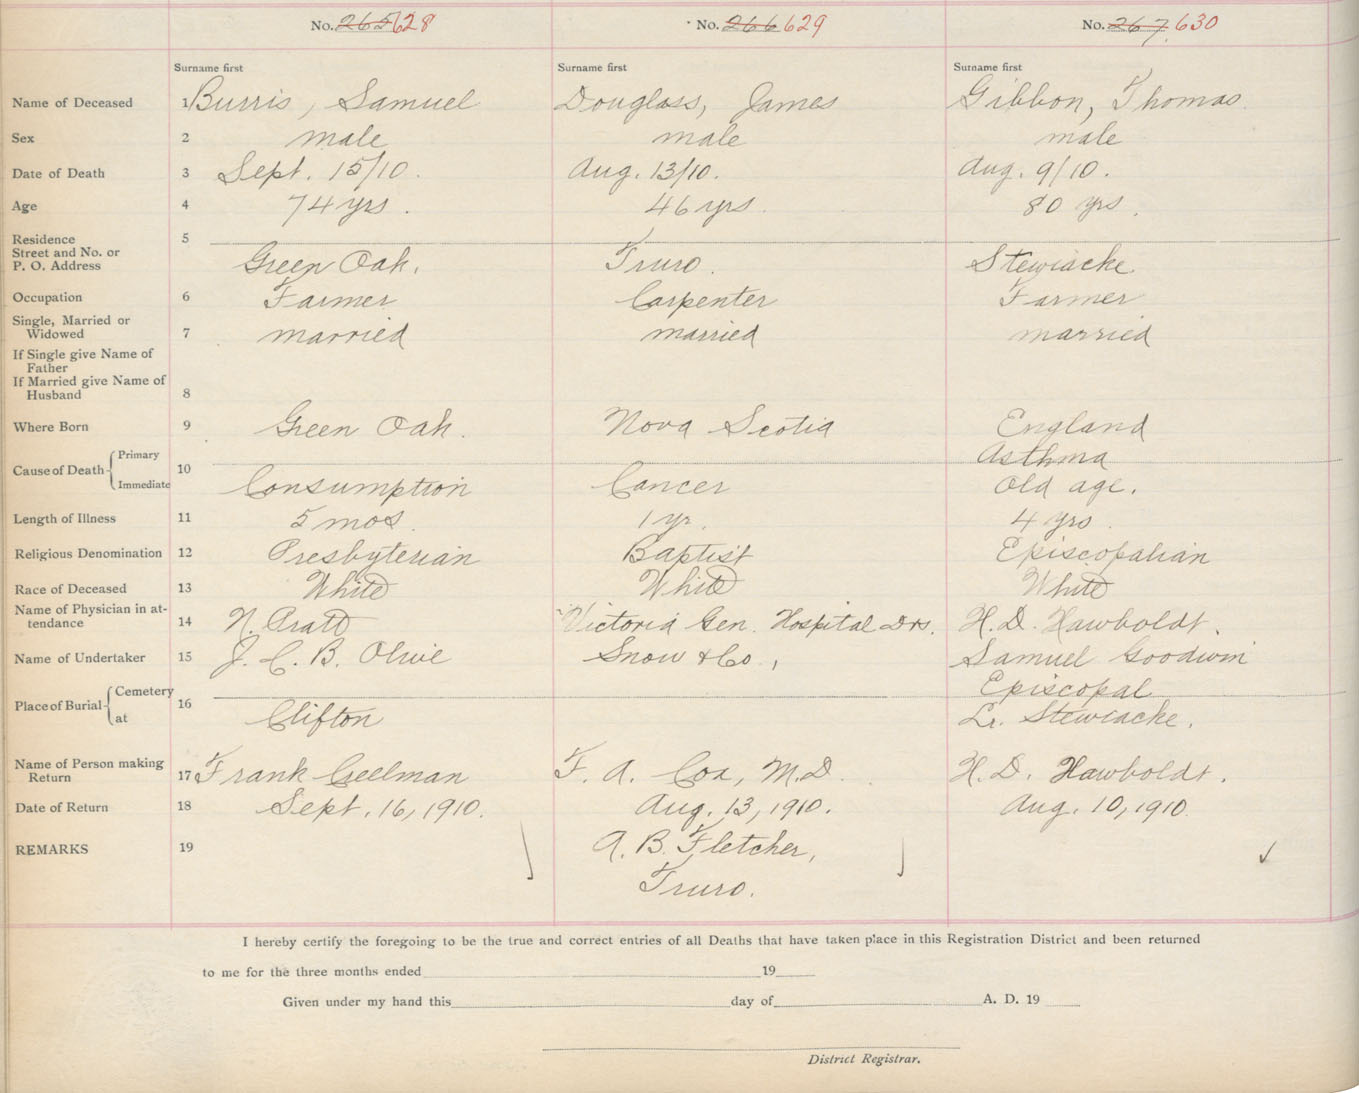 No. 265 628 No. 266 629 No. 267 630
Surname first Surname first Surname first
Name of Deceased 1 Burris, Samuel Douglass, James Gibbon, Thomas
Sex 2 male male male
Date of Death 3 Sept. 15/10. Aug. 13/10. Aug. 9/10.
Age 4 74 yrs. 46 yrs 80 yrs.
Residence 5
Street and No. or
P. O. Address Green Oak. Truro. Stewiacke
Occupation 6 Farmer Carpenter Farmer
Single, Married or
Widowed 7 married married married
If Single give Name of
Father
If Married give Name of
Husband 8
Where Born 9 Green Oak. Nova Scotia England
Cause of Death Primary 10 Asthma
Immediate Consumption Cancer Old age.
Length of Illness 11 5 mos. 1 yr. 4 yrs.
Religious Denomination 12 Presbyterian Baptist Episcopalian
Race of Deceased 13 White White White
Name of Physician in at-
tendance 14 N. Pratt Victoria Gen. Hospital Drs. H. D. Hawboldt.
Name of Undertaker 15 J. C. B. Olive Snow & Co, Samuel Goodwin
Place of Burial Cemetery 16 Episcopal
at Clifton Lr. Stewiacke.
Name of Person making
Return 17 Frank Creelman F. A. Cox, M.D. H. D. Hawboldt.
Date of Return 18 Sept. 16, 1910. Aug. 13, 1910. Aug. 10, 1910
REMARKS 19 A. B. Fletcher,
Truro.
I hereby certify the foregoing to be the true and correct entries of all Deaths that have taken place in this Registration District and been returned
to me for the three months ended 19
Given under my hand this day of A. D. 19
District Registrar.